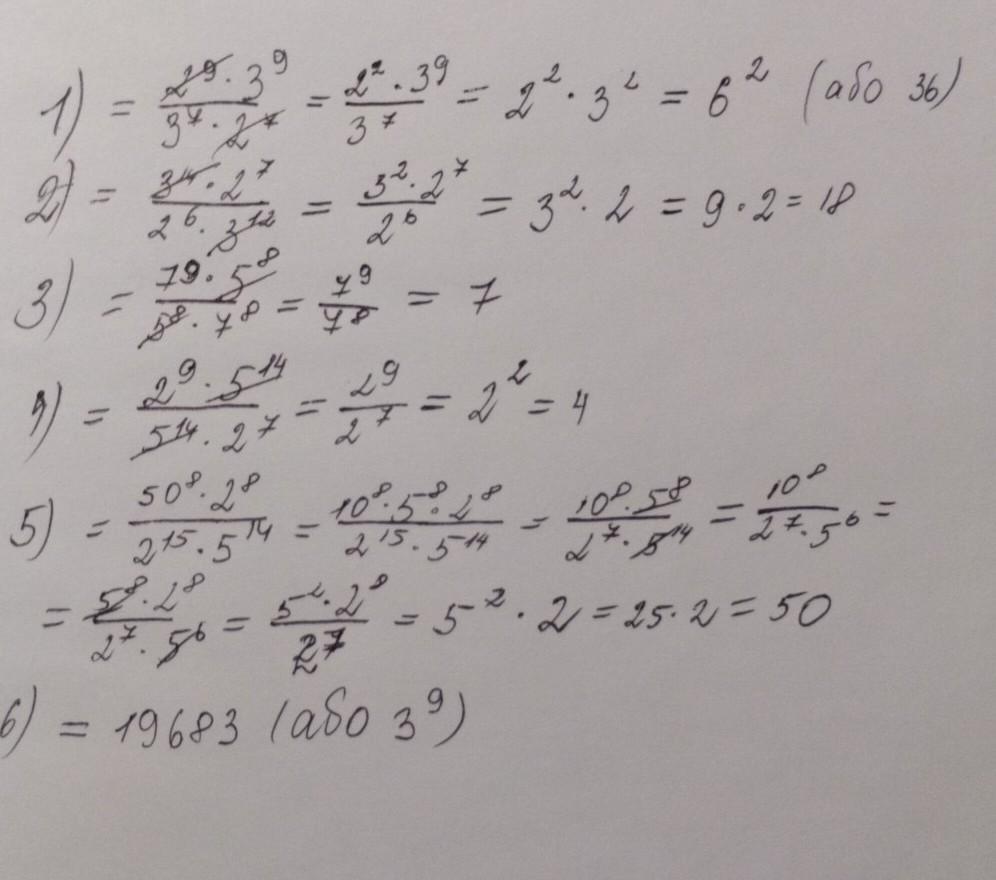 1) = 2⁹·3⁹/3⁷·2⁷ = 2²·3⁹/3⁷ = 2²·3² = 6² (або 36)
2) = 3¹⁴·2⁷/2⁶·3¹² = 3²·2⁷/2⁶ = 3²·2 = 9·2 = 18
3) = 7⁹·5⁸/5⁸·7⁸ = 7⁹/7⁸ = 7
4) = 2⁹·5¹⁴/5¹⁴·2⁷ = 2⁹/2⁷ = 2² = 4
5) = 50⁸·2⁸/2¹⁵·5¹⁴ = 10⁸·5⁸·2⁸/2¹⁵·5¹⁴ = 10⁸·5⁸/2⁷·5¹⁴ = 10⁸/2⁷·5⁶ =
= 5⁸·2⁸/2⁷·5⁶ = 5²·2⁸/2⁷ = 5²·2 = 25·2 = 50
6) = 19683 (або 3⁹)